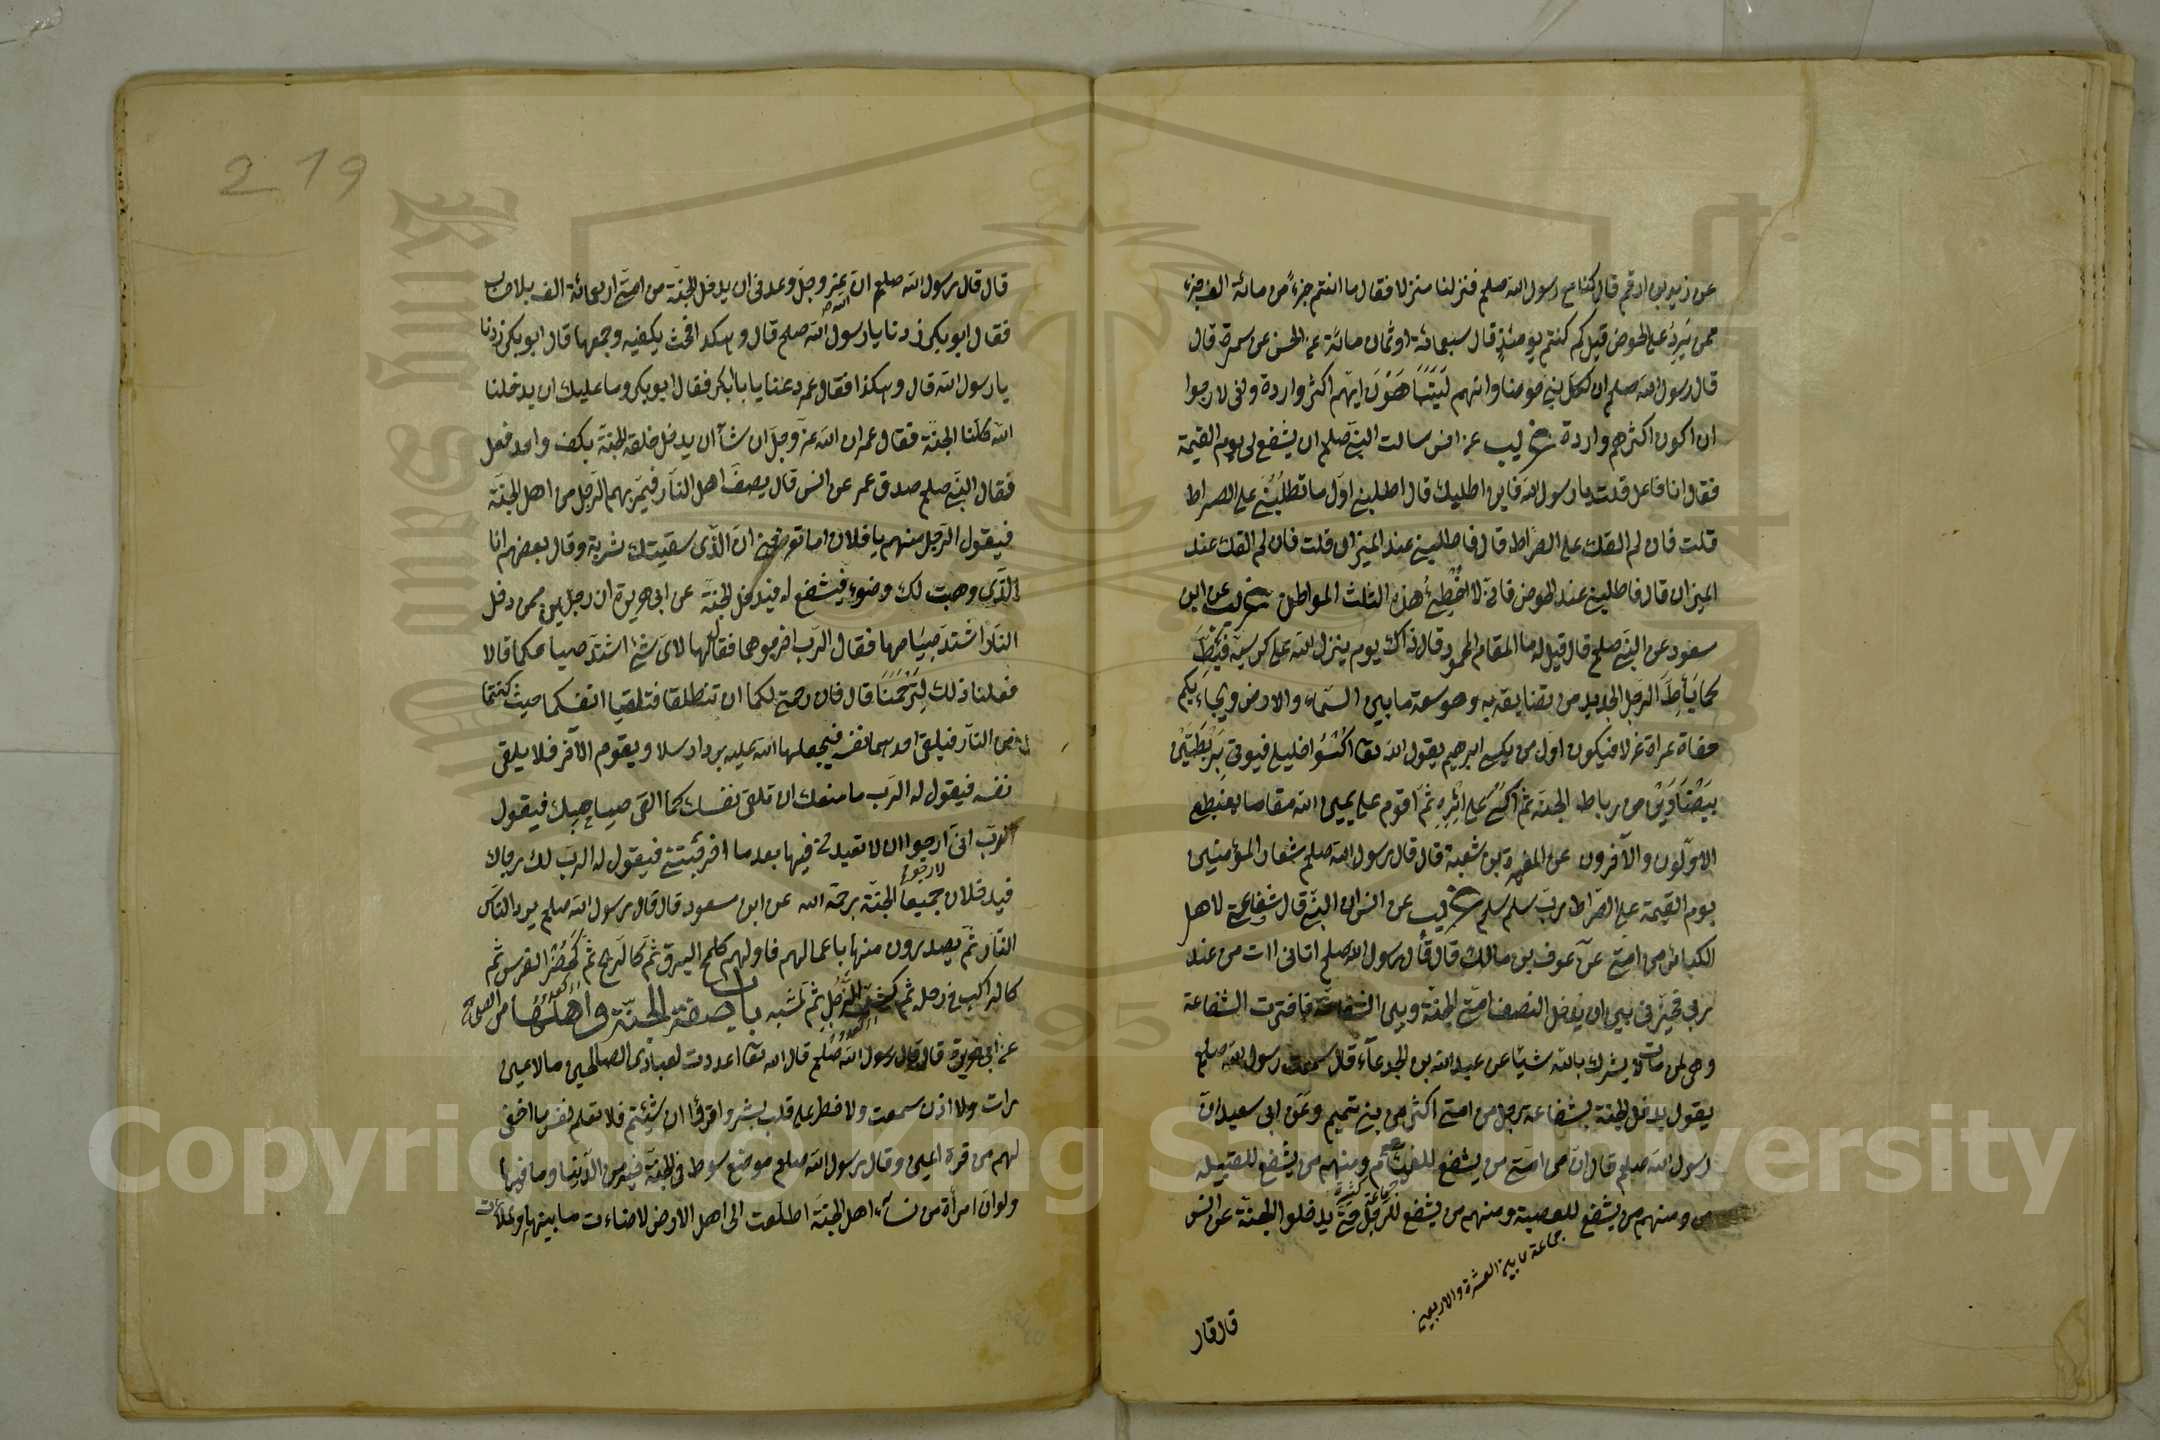 عن زيد بن ارقم قال كنا مع رسول الله صلعم فنزلنا منزلا فقال ما انتم جزء من مائة الف جزء
ممن يرد على الحوض قيل كم كنتم يومئذ قال سبعمائة او ثمان مائة عن الحسن عن سمرة قال
قال رسول الله صلعم ان لكل نبي حوضا وانهم ليتباهون ايهم اكثر واردة واني لارجوا
ان اكون اكثرهم واردة غريب عن انس سالت النبي صلعم ان يشفع لي يوم القيمة
فقال انا فاعل قلت يا رسول الله فاين اطلبك قال اطلبني اول ما تطلبني على الصراط
قلت فان لم القك على الصراط قال فاطلبني عند الميزان قلت فان لم القك عند
الميزان قال فاطلبني عند الحوض فاني لا اخطئ هذه الثلث المواطن غريب عن ابن
مسعود عن النبي صلعم قال قيل له ما المقام المحمود قال ذاك يوم ينزل الله على كرسيه فيئط
كما يأط الرجل الجديد من تضايقه به وهو سعة ما بين السماء والارض ويجاء بكم
حفاة عراة غرلا فيكون اول من يكسى ابرهيم يقول الله تعا اكسوا خليلي فيوتى بريطتين
بيضاوين من رياط الجنة ثم اكسى على اثره ثم اقوم على يمين الله مقاما يغبطني
الاولون والآخرون عن المغيرة بن شعبة قال قال رسول الله صلعم شعار المؤمنين
يوم القيمة على الصراط رب سلم سلم غريب عن انس ان النبي قال شفاعتي لاهل
الكبائر من امتي عن عوف بن مالك قال قال رسول الله صلعم اتاني آت من عند
ربي فخيرني بين ان يدخل النصف امتي الجنة وبين الشفاعة فاخترت الشفاعة
وهي لمن مات لا يشرك بالله شيئا عن عبد الله بن الجدعاء قال سمعت رسول الله صلعم
يقول يدخل الجنة بشفاعة رجل من امتي اكثر من بني تميم وعن ابي سعيد ان
رسول الله صلعم قال ان من امتي من يشفع للفئام ومنهم من يشفع للقبيلة
ومنهم من يشفع للعصبة ومنهم من يشفع للرجل حتى يدخلوا الجنة عن انس
جماعة ما بين العشرة والاربعين
قال قال
219
قال قال رسول الله صلعم ان الله عز وجل وعدني ان يدخل الجنة من امتي اربعمائة الف بلا حساب
فقال ابو بكر زدنا يا رسول الله صلعم قال وهكذا فحث بكفيه وجمعها قال ابو بكر زدنا
يا رسول الله قال وهكذا فقال عمر دعنا يا با بكر فقال ابو بكر وما عليك ان يدخلنا
الله كلنا الجنة فقال عمر ان الله عز وجل ان شآ ان يدخل خلقه الجنة بكف واحد فعل
فقال النبي صلعم صدق عمر عن انس قال يصف اهل النار فيمر بهم الرجل من اهل الجنة
فيقول الرجل منهم يا فلان اما تعرفني ان الذي سقيتك شربة وقال بعضهم انا
الذي وهبت لك وضوء فيشفع له فيدخل الجنة عن ابي هريرة ان رجلين ممن دخل
النار اشتد صياحهما فقال الرب اخرجوهما فقال لهما لاى شئ اشتد صياحكما قالا
فعلنا ذلك لترحمنا قال فان رحمتي لكما ان تنطلقا فتلقيا انفسكما حيث كنتما
من النار فيلقى احدهما نفسه فيجعلها الله عليه بردا وسلا ويقوم الآخر فلا يلقى
نفسه فيقول له الرب ما منعك ان تلقى نفسك كما القى صاحبك فيقول
الرب اني ارجوا ان لا تعيدني فيها بعد ما اخرجتني فيقول له الرب لك رجاك
فيدخلان جميعا الجنة برحمة الله عن ابن مسعود قال قال رسول الله صلعم يرد الناس
النار ثم يصدرون منها باعمالهم فاولهم كلمح البرق ثم كالريح ثم كحضر الفرس ثم
كالراكب في رحله ثم كشد الرجل ثم كمشيه باب صفة الجنة واهلها من الصحاح
عن ابي هريرة قال قال رسول الله صلعم قال الله تعا اعددت لعبادي الصالحين ما لا عين
رات ولا اذن سمعت ولا خطر على قلب بشر واقرؤا ان شئتم فلا تعلم نفس ما اخفى
لهم من قرة اعين وقال رسول الله صلعم موضع سوط في الجنة خير من الدنيا وما فيها
ولو ان امرأة من نسآء اهل الجنة اطلعت الى اهل الارض لاضاءت ما بينهما ولملأت